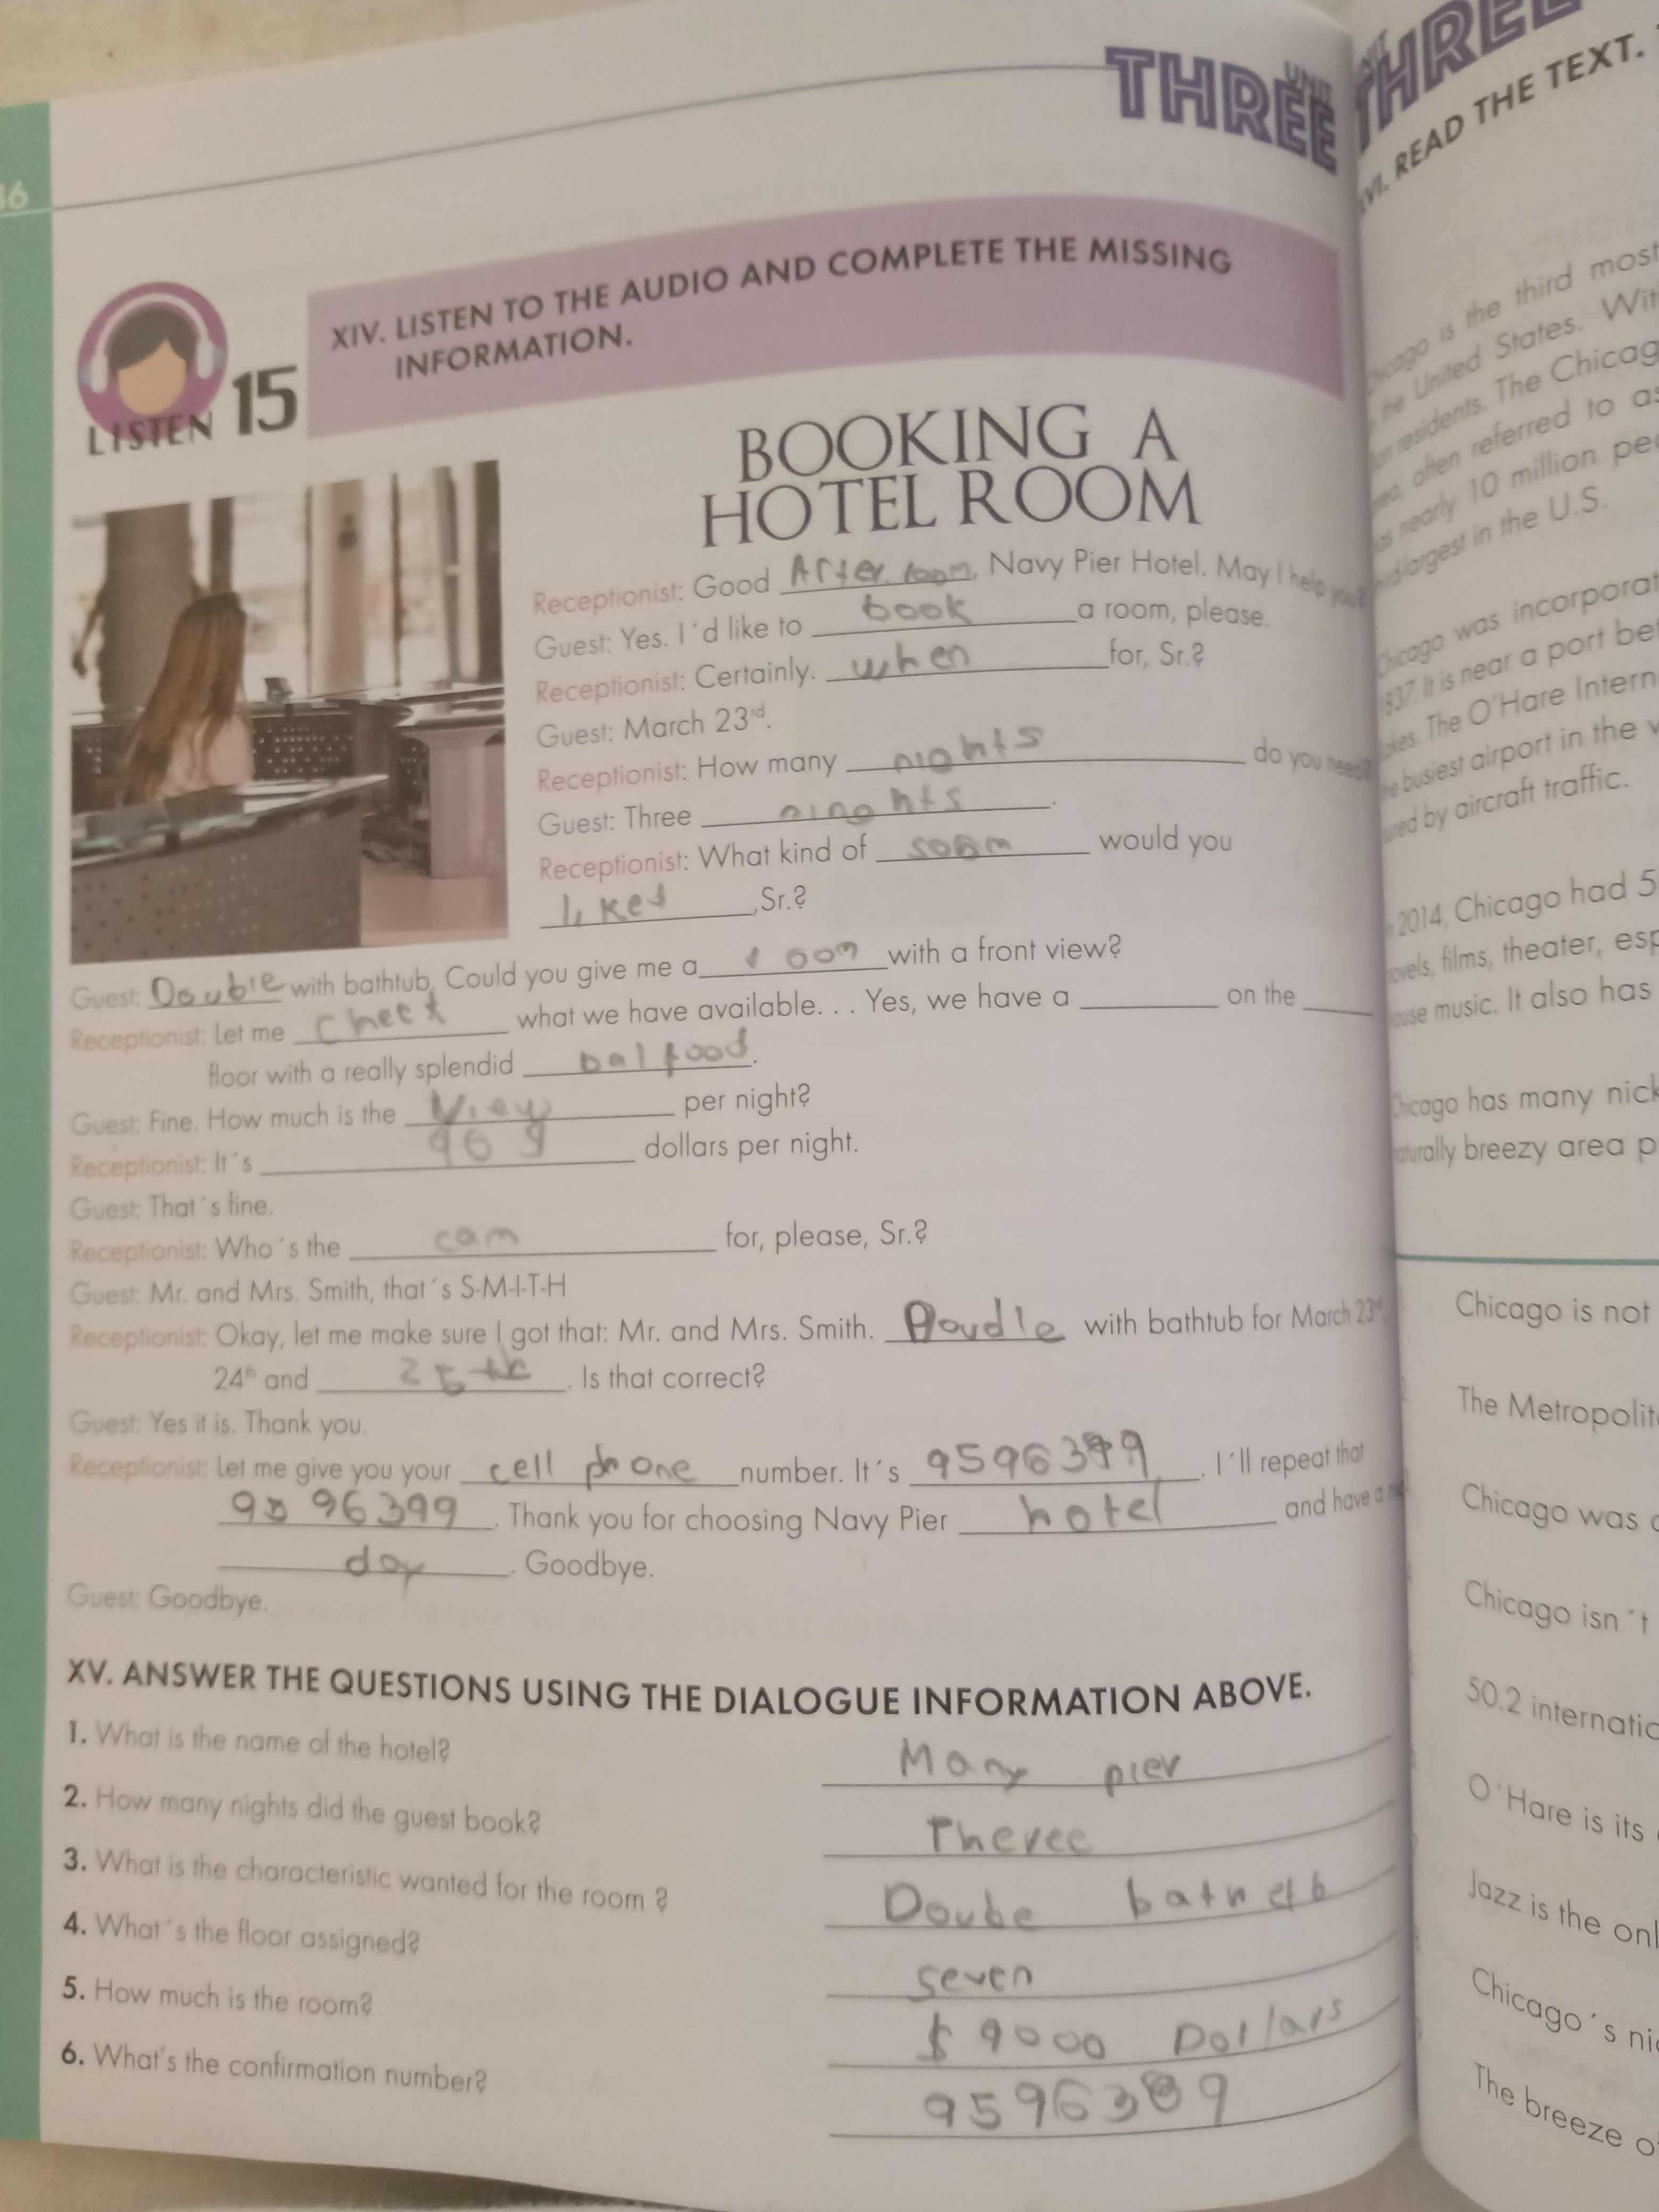 36
UNIT
THREE
LISTEN 15
XIV. LISTEN TO THE AUDIO AND COMPLETE THE MISSING
INFORMATION.
BOOKING A
HOTEL ROOM
Receptionist: Good, Navy Pier Hotel. May I help you?
Guest: Yes. I´d like to book a room, please.
Receptionist: Certainly. when for, Sr.?
Guest: March 23rd.
Receptionist: How many nights do you need?
Guest: Three
Receptionist: What kind of would you
, Sr.?
Guest: Double with bathtub. Could you give me a room with a front view?
Receptionist: Let me check what we have available. . . Yes, we have a ______ on the ______
floor with a really splendid
Guest: Fine. How much is the view per night?
Receptionist: It´s dollars per night.
Guest: That´s fine.
Receptionist: Who´s the cam for, please, Sr.?
Guest: Mr. and Mrs. Smith, that´s S-M-I-T-H
Receptionist: Okay, let me make sure I got that: Mr. and Mrs. Smith. Doudle with bathtub for March 23rd,
24th and 25th. Is that correct?
Guest: Yes it is. Thank you.
Receptionist: Let me give you your cell phone number. It´s. I´ll repeat that
9596399. Thank you for choosing Navy Pier hotel and have a
day. Goodbye.
Guest: Goodbye.
XV. ANSWER THE QUESTIONS USING THE DIALOGUE INFORMATION ABOVE.
1. What is the name of the hotel? Many pier
2. How many nights did the guest book? Theree
3. What is the characteristic wanted for the room ? Doube
4. What´s the floor assigned? seven
5. How much is the room? $ 9000 Dollars
6. What's the confirmation number? 9596389
UNIT
THREE
XVI. READ THE TEXT.
Chicago is the third most
the United States.
residents. The
often referred to as
nearly 10 million
largest in the U.S.
Chicago was
1837. It is near a port
The O'Hare
busiest airport in the
by aircraft traffic.
2014, Chicago had
films, theater,
music. It also has
Chicago has many
breezy area
Chicago is not
The
Chicago was
Chicago isn´t
50.2
O´Hare is its
Jazz is the
Chicago´s
The breeze